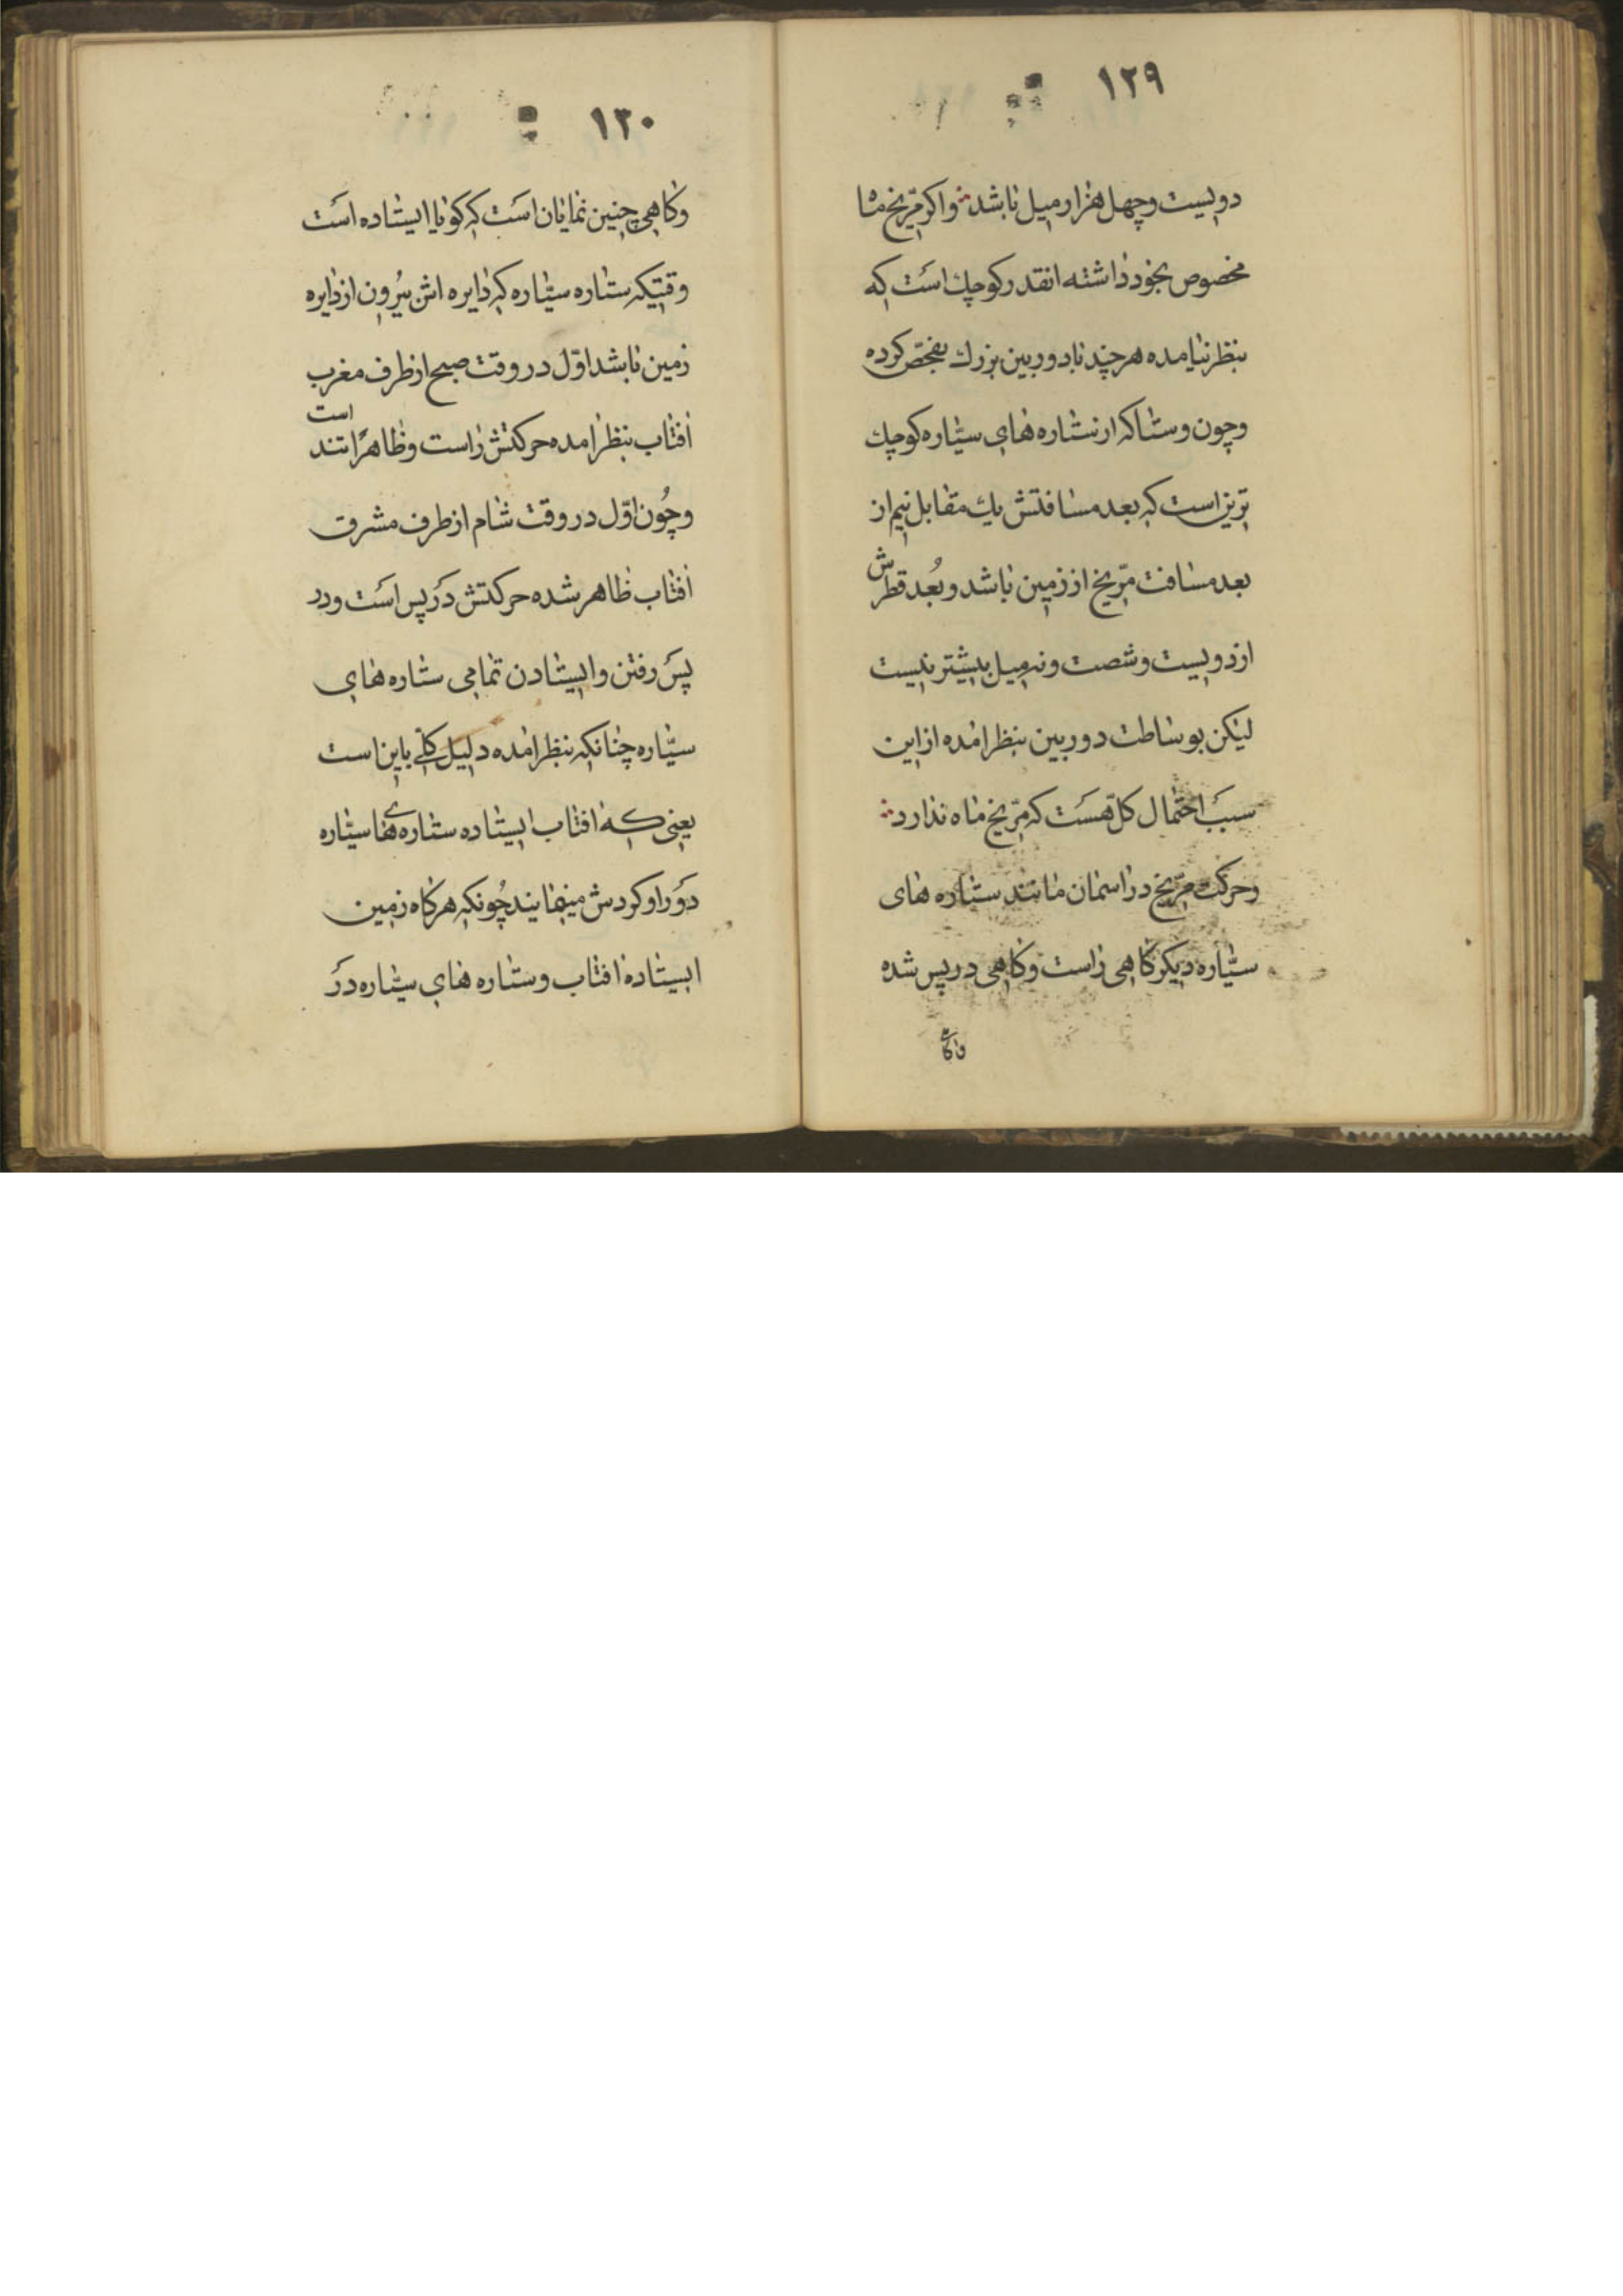 ١٢٩
دویست وچهل هزار میل باشد واکر مرّیخ ماا
مخصوص بخود داشته انقدر کوچك است که
بنظر نیامده هرچند با دوربین بزرك تفحّص کرده
وچون وستا که از ستاره های سیّاره کوچك
ترین است که بعد مسافتش یك مقابل نیم از
بعد مسافت مرّیخ از زمین باشد و بُعد قطرش
از دویست وشصت ونه میل بیشتر نیست
لیکن بوساطت دوربین بنظر امده از این
سبَب احتمال کلّ هسَت که مرّیخ ماه ندارد
وحرکت مرّیخ در اسمان مانند ستاره های
سیّاره دیکر کاهی راست وکاهی در پس شده
وکاهی
١٣٠
وکاهی چنین نمایان است که کویا ایستاده است
وقتیکه ستاره سیّاره که دایره اش بیرُون از دایره
زمین باشد اوّل در وقت صبح از طرف مغرب
افتاب بنظر امده حرکتش راست وظاهرًا تند است
وچُون اوّل در وقت شام از طرف مشرق
افتاب ظاهر شده حرکتش دَر پس است ودر
پسَ رفتن وایستادن تمامی ستاره های
سیّاره چنانکه بنظر امده دلیل کلّی باین است
یعنی که افتاب ایستاده ستاره های سیّاره
دَور او کردش مینمایند چُونکه هرکاه زمین
ایستاده افتاب وستاره های سیّاره دَر